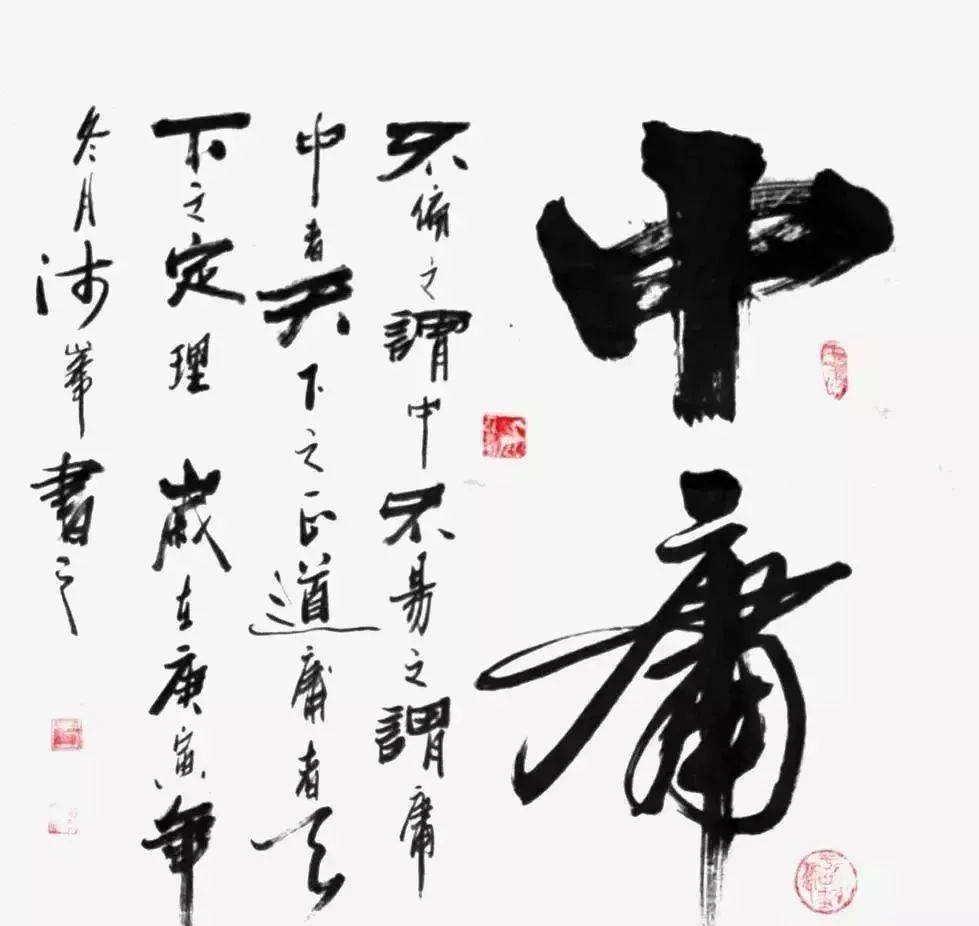 中庸
不偏之謂中不易之謂庸
中者天下之正道庸者天
下之定理 歲在庚寅年
冬月峯書之